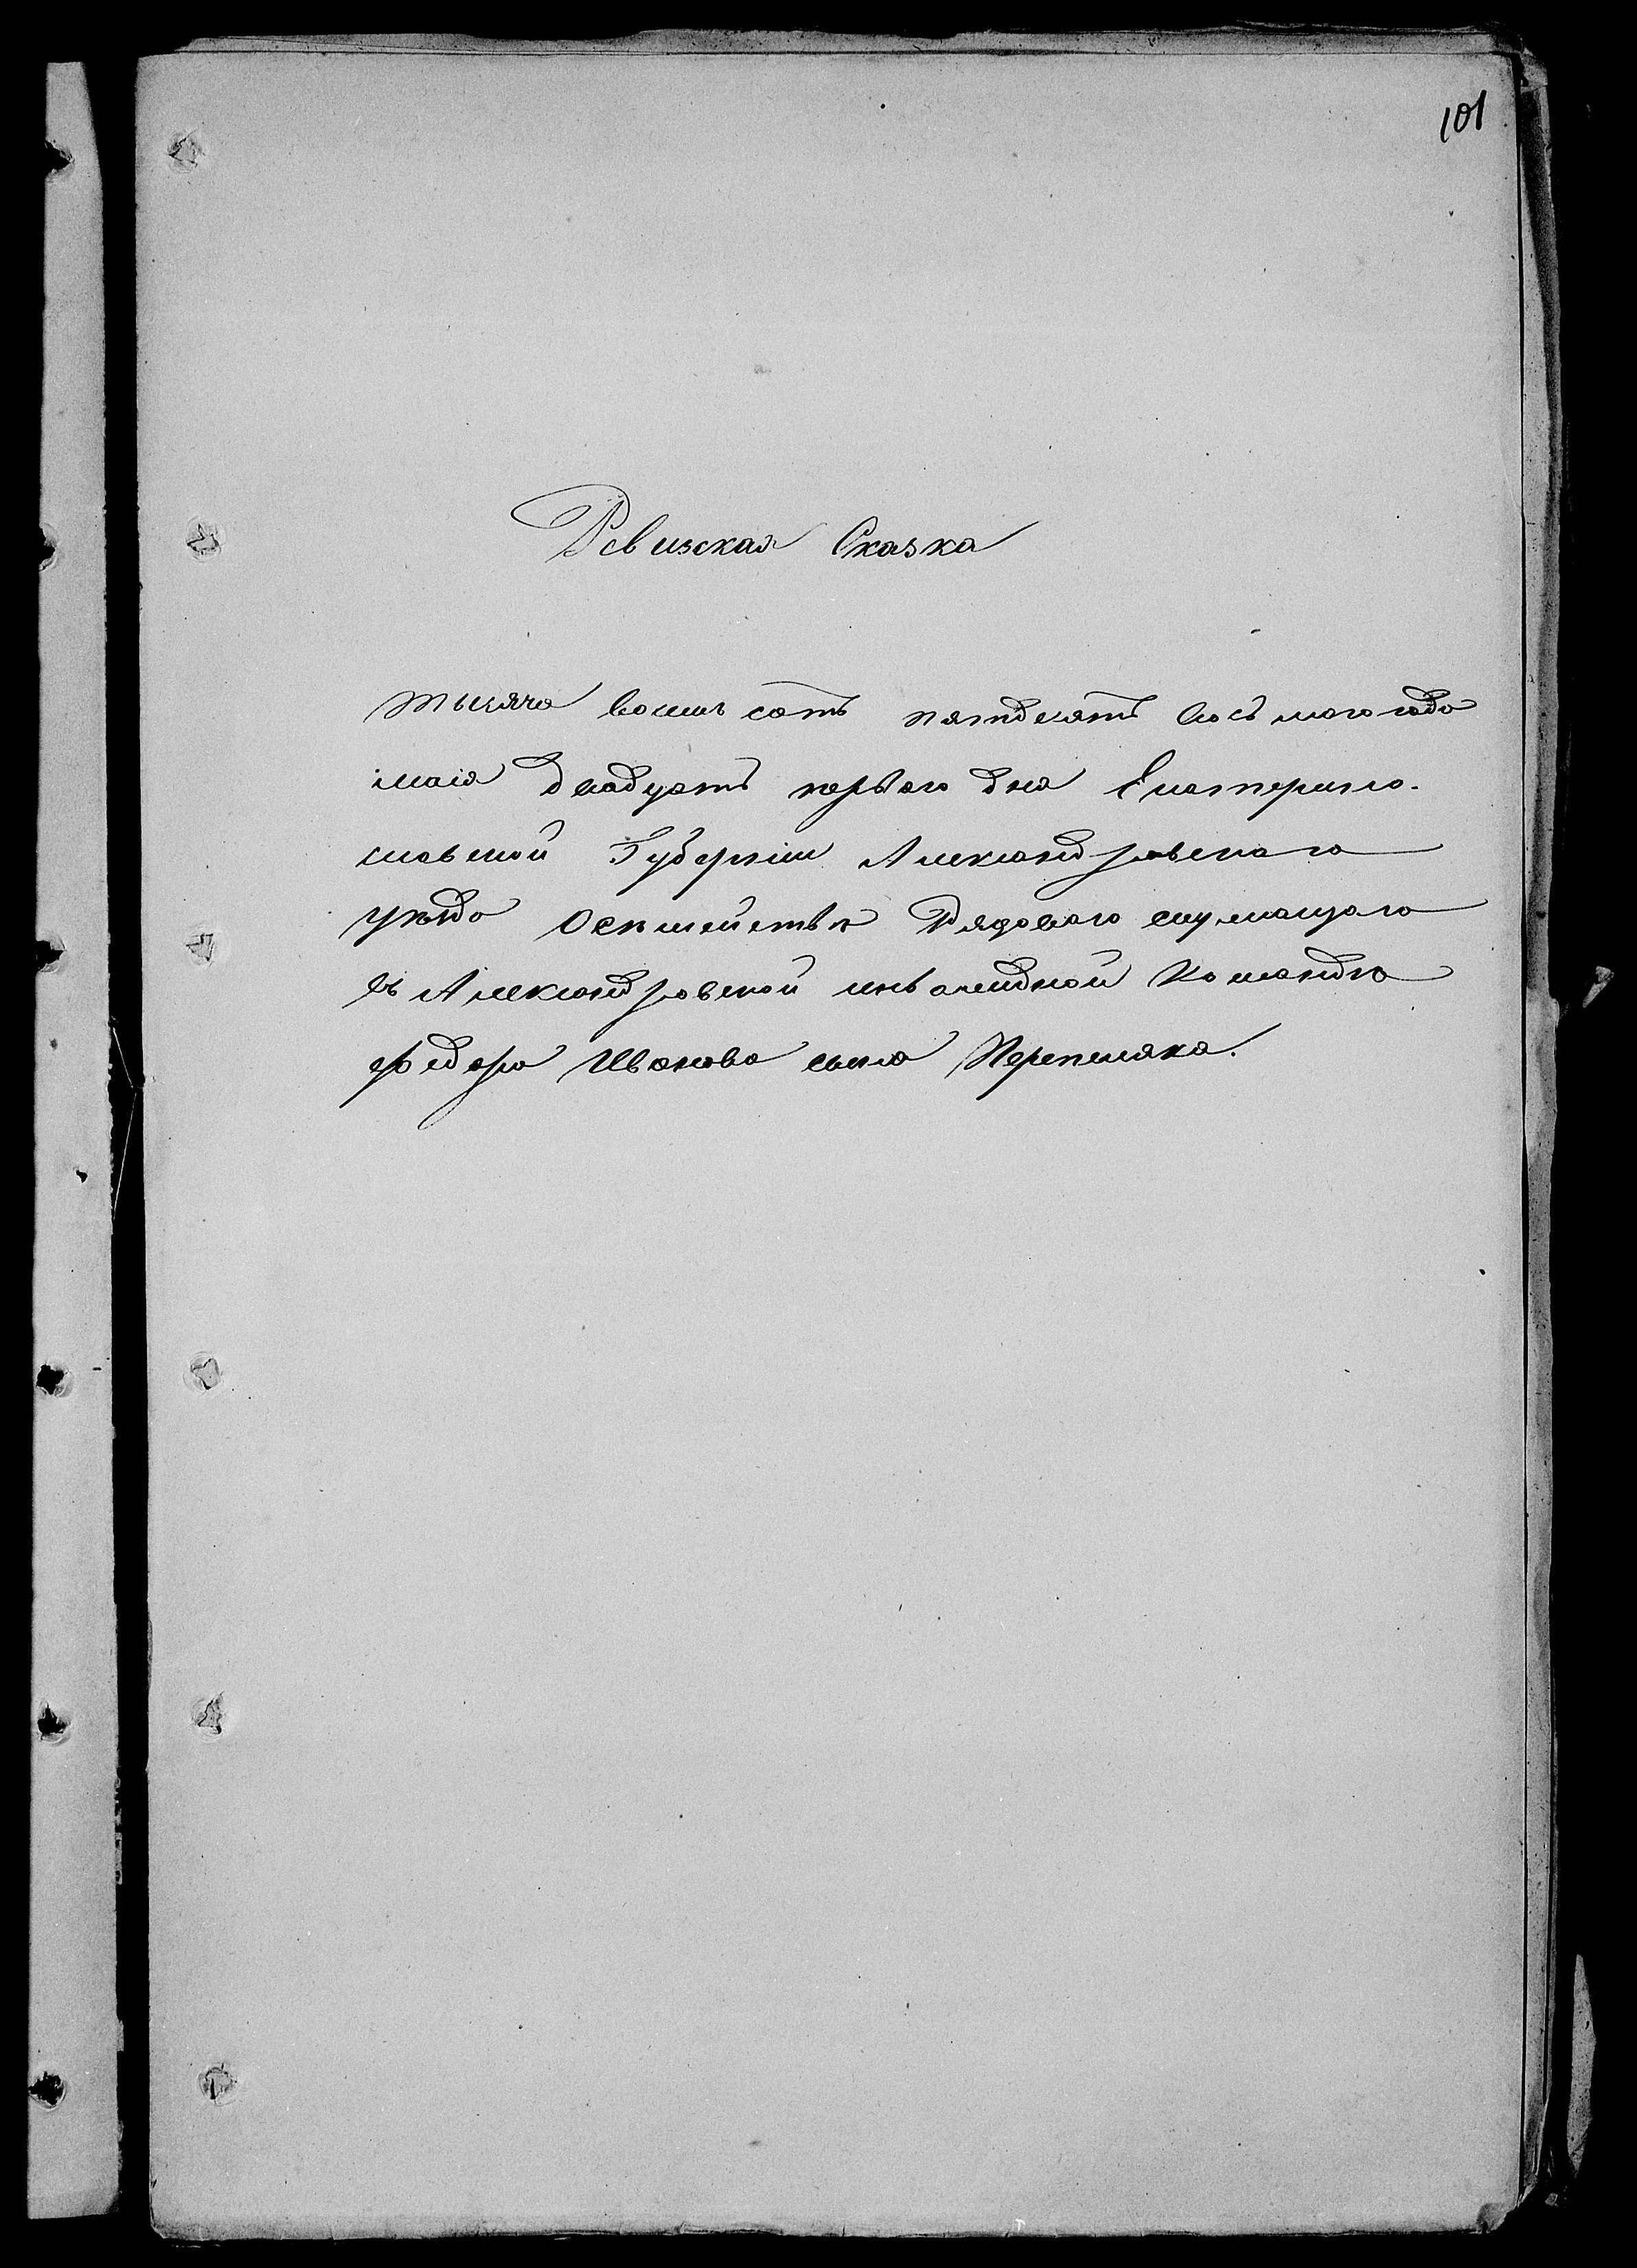 101
Ревизская Сказка
тысяча восемь сотъ пятдесятъ восьмого года
маія двадцать первого дня Екатерино-
славской Губерніи Александровского
уезда Осемействе Рядового служащого
въ Александровской инвалидной Команде
федора Иванова сына Перепеляка.